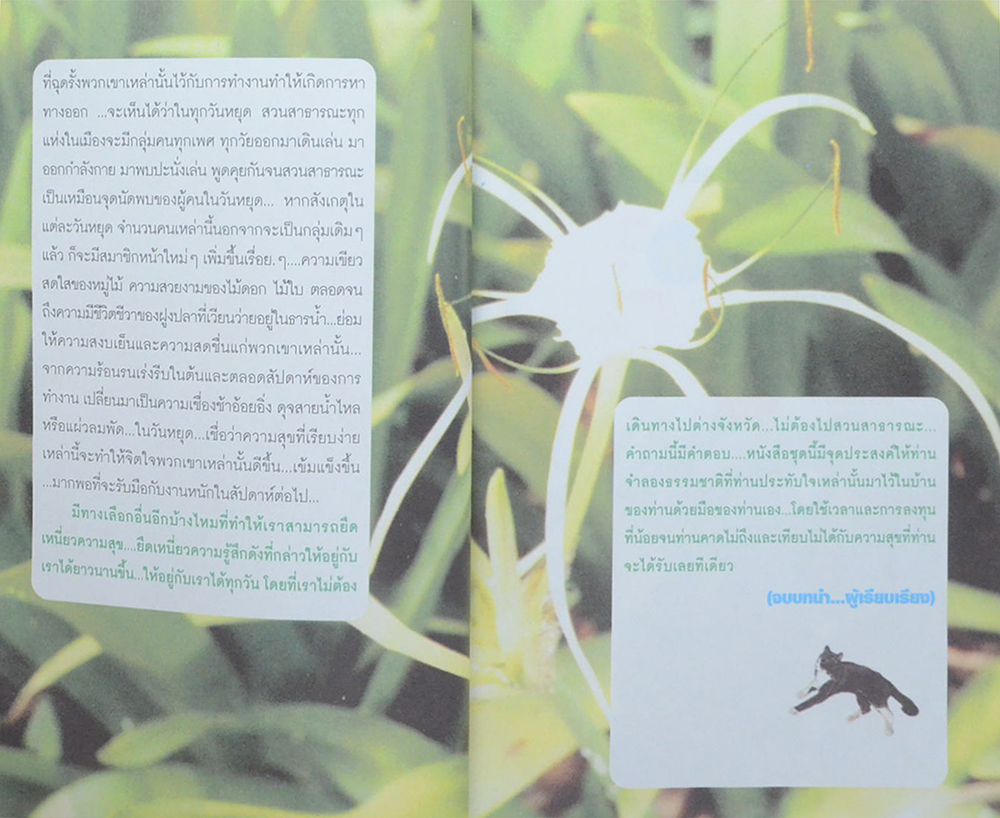 ที่ฉุดรั้งพวกเขาเหล่านั้นไว้กับการทำงานทำให้เกิดการหา
ทางออก ...จะเห็นได้ว่าในทุกวันหยุด สวนสาธารณะทุก
แห่งในเมืองจะมีกลุ่มคนทุกเพศ ทุกวัยออกมาเดินเล่น มา
ออกกำลังกาย มาพบปะนั่งเล่น พูดคุยกันจนสวนสาธารณะ
เป็นเหมือนจุดนัดพบของผู้คนในวันหยุด... หากสังเกตุใน
แต่ละวันหยุด จำนวนคนเหล่านี้นอกจากจะเป็นกลุ่มเดิมๆ
แล้ว ก็จะมีสมาชิกหน้าใหม่ๆ เพิ่มขึ้นเรื่อย.ๆ....ความเขียว
สดใสของหมู่ไม้ ความสวยงามของไม้ดอก ไม้ใบ ตลอดจน
ถึงความมีชีวิตชีวาของฝูงปลาที่เวียนว่ายอยู่ในธารน้ำ...ย่อม
ให้ความสงบเย็นและความสดชื่นแก่พวกเขาเหล่านั้น...
จากความร้อนรนเร่งรีบในต้นและตลอดสัปดาห์ของการ
ทำงาน เปลี่ยนมาเป็นความเชื่องช้าอ้อยอิ่ง ดุจสายน้ำไหล
หรือแผ่วลมพัด...ในวันหยุด...เชื่อว่าความสุขที่เรียบง่าย
เหล่านี้จะทำให้จิตใจพวกเขาเหล่านั้นดีขึ้น...เข้มแข็งขึ้น
...มากพอที่จะรับมือกับงานหนักในสัปดาห์ต่อไป...
มีทางเลือกอื่นอีกบ้างไหมที่ทำให้เราสามารถยึด
เหนี่ยวความสุข....ยึดเหนี่ยวความรู้สึกดังที่กล่าวให้อยู่กับ
เราได้ยาวนานขึ้น...ให้อยู่กับเราได้ทุกวัน โดยที่เราไม่ต้อง
เดินทางไปต่างจังหวัด...ไม่ต้องไปสวนสาธารณะ...
คำถามนี้มีคำตอบ....หนังสือชุดนี้มีจุดประสงค์ให้ท่าน
จำลองธรรมชาติที่ท่านประทับใจเหล่านั้นมาไว้ในบ้าน
ของท่านด้วยมือของท่านเอง...โดยใช้เวลาและการลงทุน
ที่น้อยจนท่านคาดไม่ถึงและเทียบไม่ได้กับความสุขที่ท่าน
จะได้รับเลยทีเดียว
(จบบทนำ...ผู้เรียบเรียง)